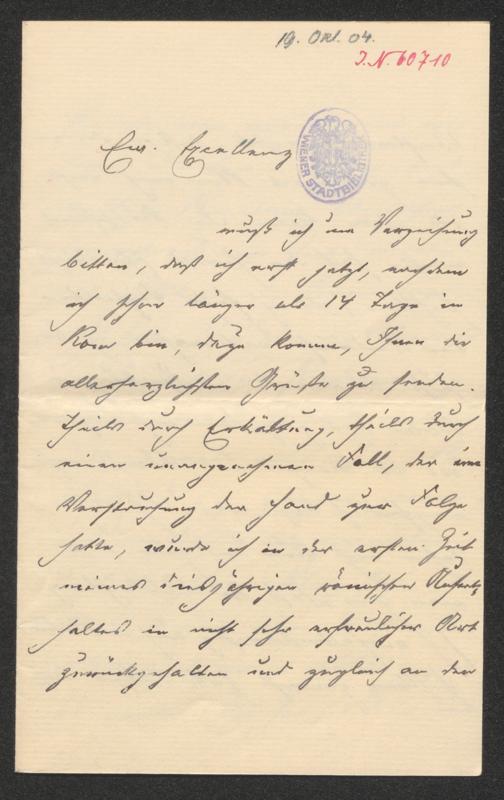 19. Okt. 04.
I.N. 60710
WIENER STADTBIBLIOTHEK
Euer Excellenz
muß ich um Verzeihung
bitten, daß ich erst jetzt, nachdem
ich schon länger als 14 Tage in
Rom bin, dazu komme, Ihnen die
allerherzlichsten Grüße zu senden.
Theils durch Erkältung, theils durch
einen unangenehmen Fall, der eine
Verstauchung der Hand zur Folge
hatte, wurde ich in der ersten Zeit
meines diesjährigen römischen Aufent-
haltes in nicht sehr erfreulicher Art
zurückgehalten und zugleich an den